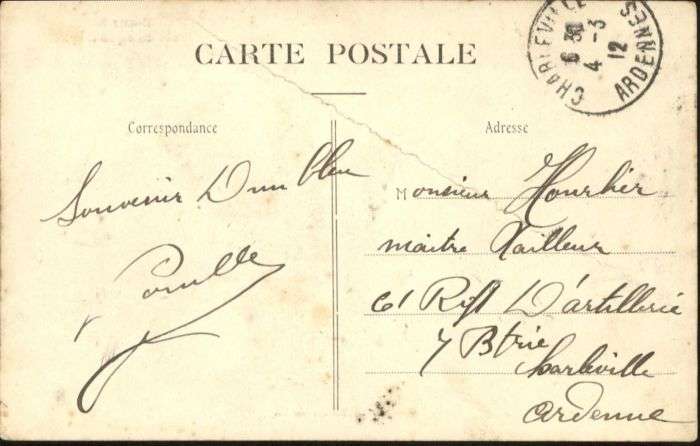 CARTE POSTALE
CHARLEVILLE
6 30
4 -3
12
ARDENNES
Correspondance
Souvenir D'un bleu
Adresse
Monsieur Hourlier
maitre Tailleur
61 Rgt D'artillerie
7 Btrie
charleville
ardenne